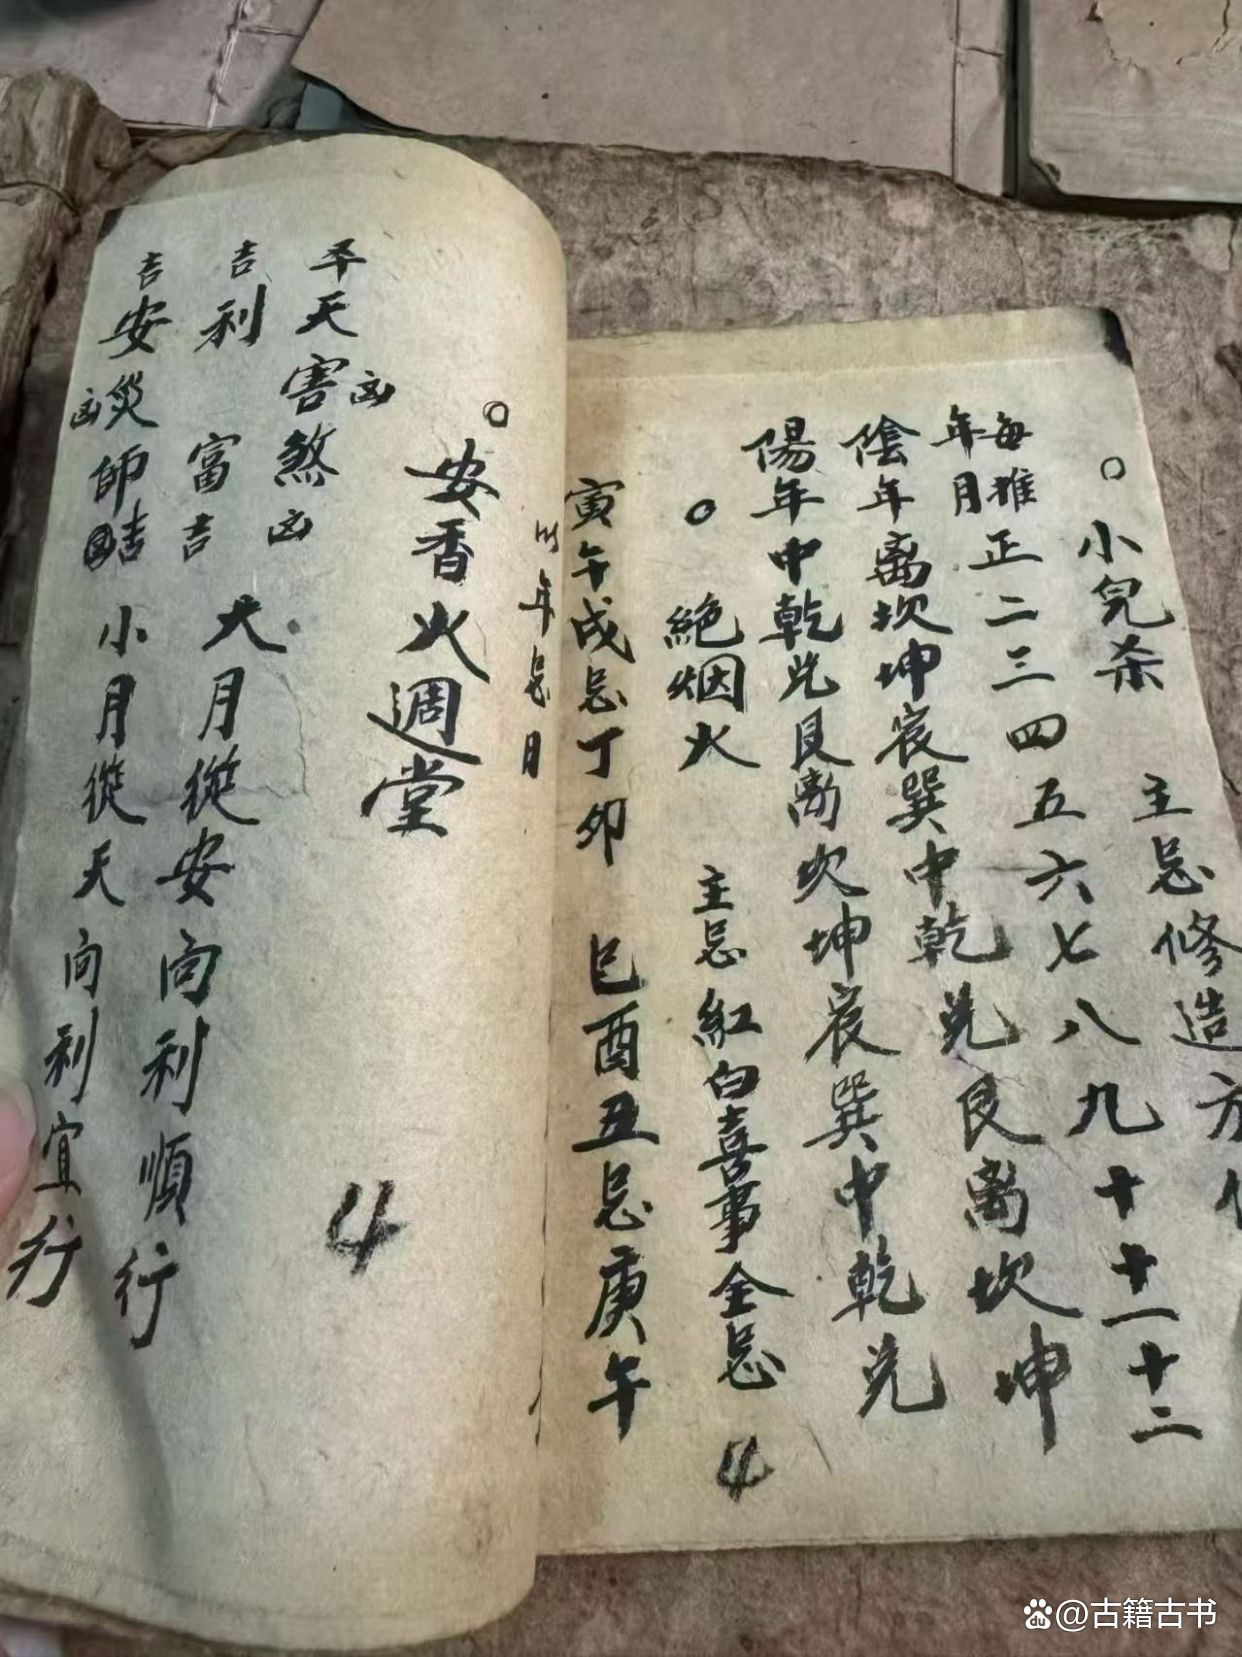 ○小兒杀 主忌修造方
每年 推月 正二三四五六七八九十十一十二
陰年離坎坤宸巽中乾兌艮离坎坤
陽年中乾兌艮离坎坤宸巽中乾兌
○絕烟火 主忌紅白喜事全忌
4
寅午戌忌丁卯 巳酉丑忌庚午
以年忌月
○安香火週堂
4
平天害凶煞凶
吉利富吉 大月從安向利順行
吉安災凶師吉 小月從天向利宜行
@古籍古书